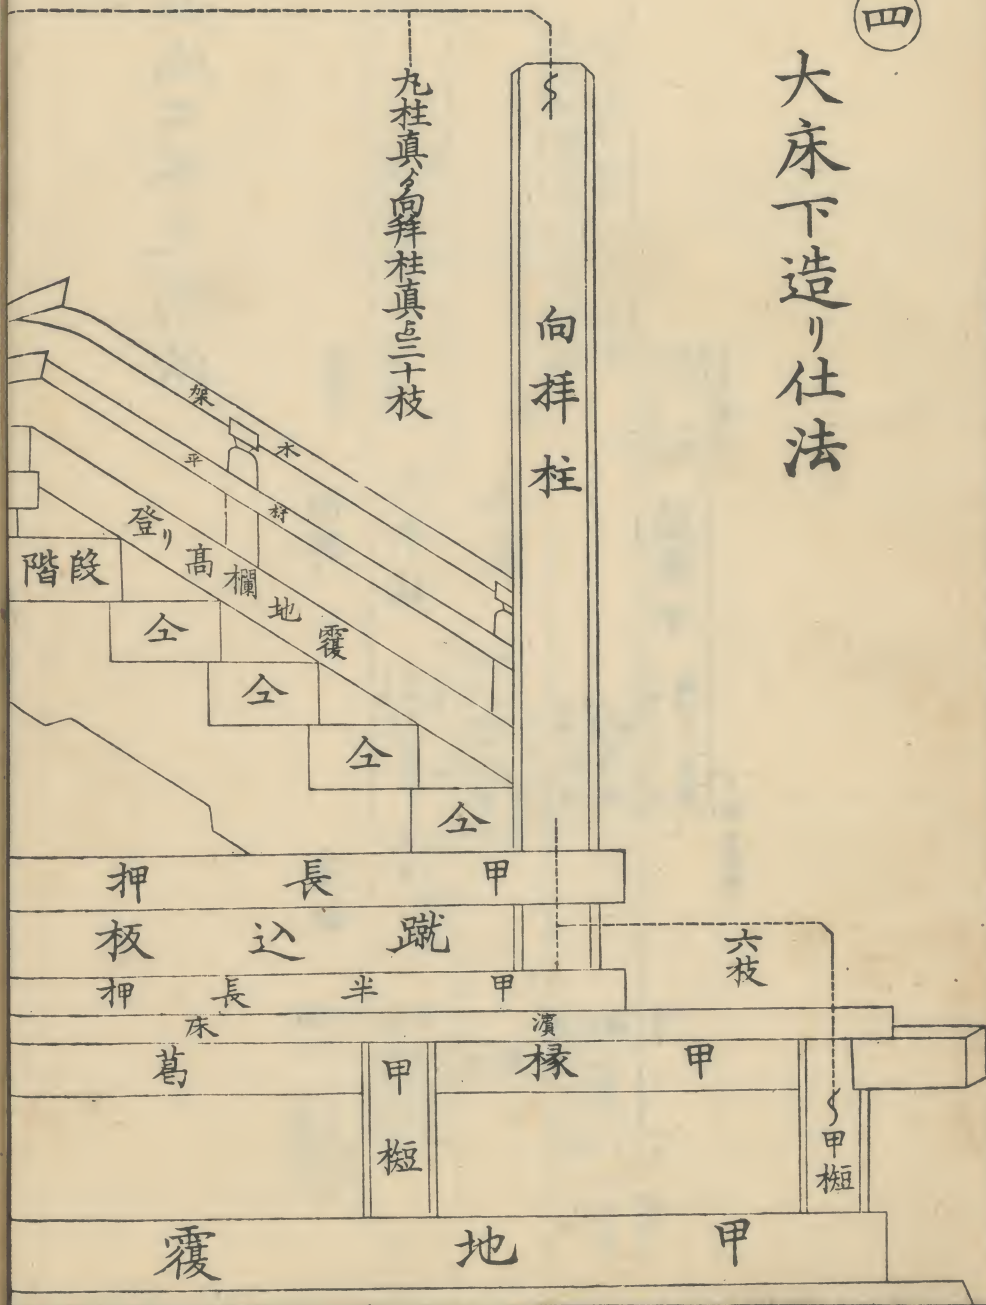 四
大床下造リ仕法
向拝柱
丸柱真ゟ向拝柱真迠三十枝
架木
平桁
登リ高欄地覆
階段
仝
仝
仝
仝
甲長押
蹴込板
甲半長押
濱床
甲縁葛
六枝
甲𣖔
甲𣖔
甲地覆